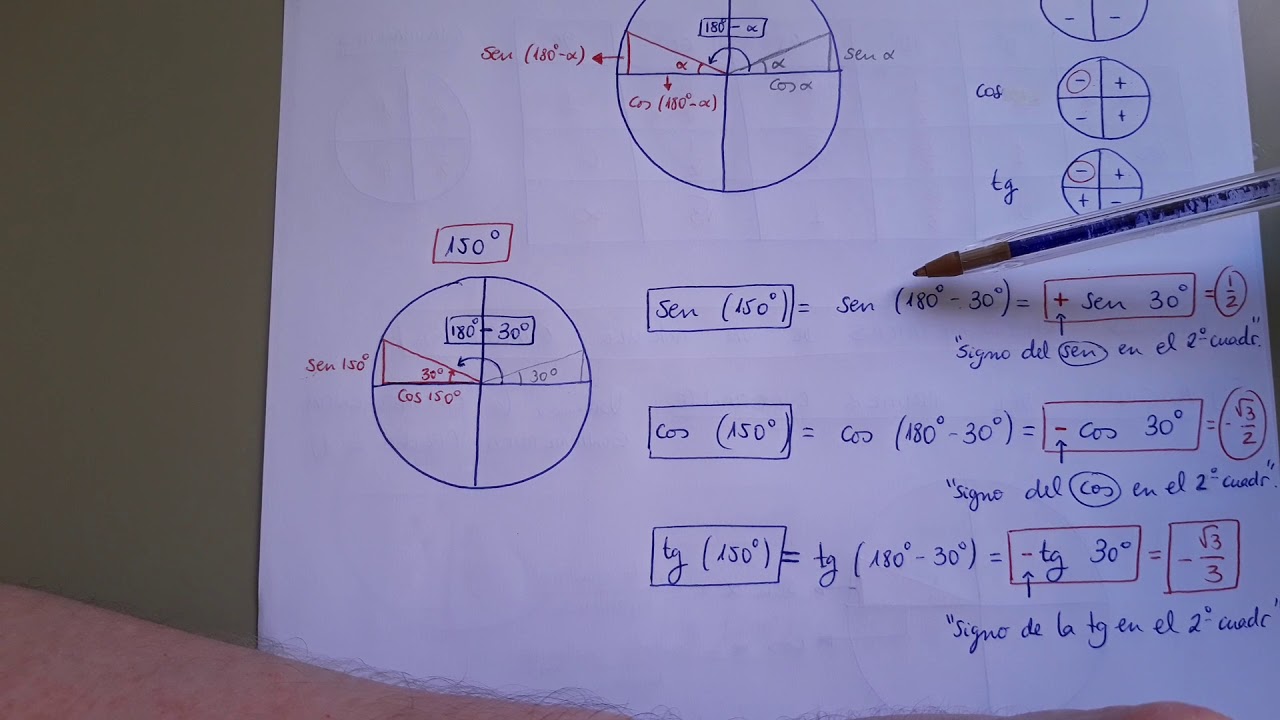 180° - α
sen (180° - α)
α
α
sen α
cos (180° - α)
cos α
- -
cos
- +
- +
tg
- +
+ -
150°
180° - 30°
sen 150°
30°
30°
cos 150°
sen (150°) = sen (180° - 30°) = + sen 30° = 1/2
"signo del sen en el 2º cuadr."
cos (150°) = cos (180° - 30°) = - cos 30° = - √3/2
"signo del cos en el 2º cuadr."
tg (150°) = tg (180° - 30°) = - tg 30° = - √3/3
"signo de la tg en el 2º cuadr"